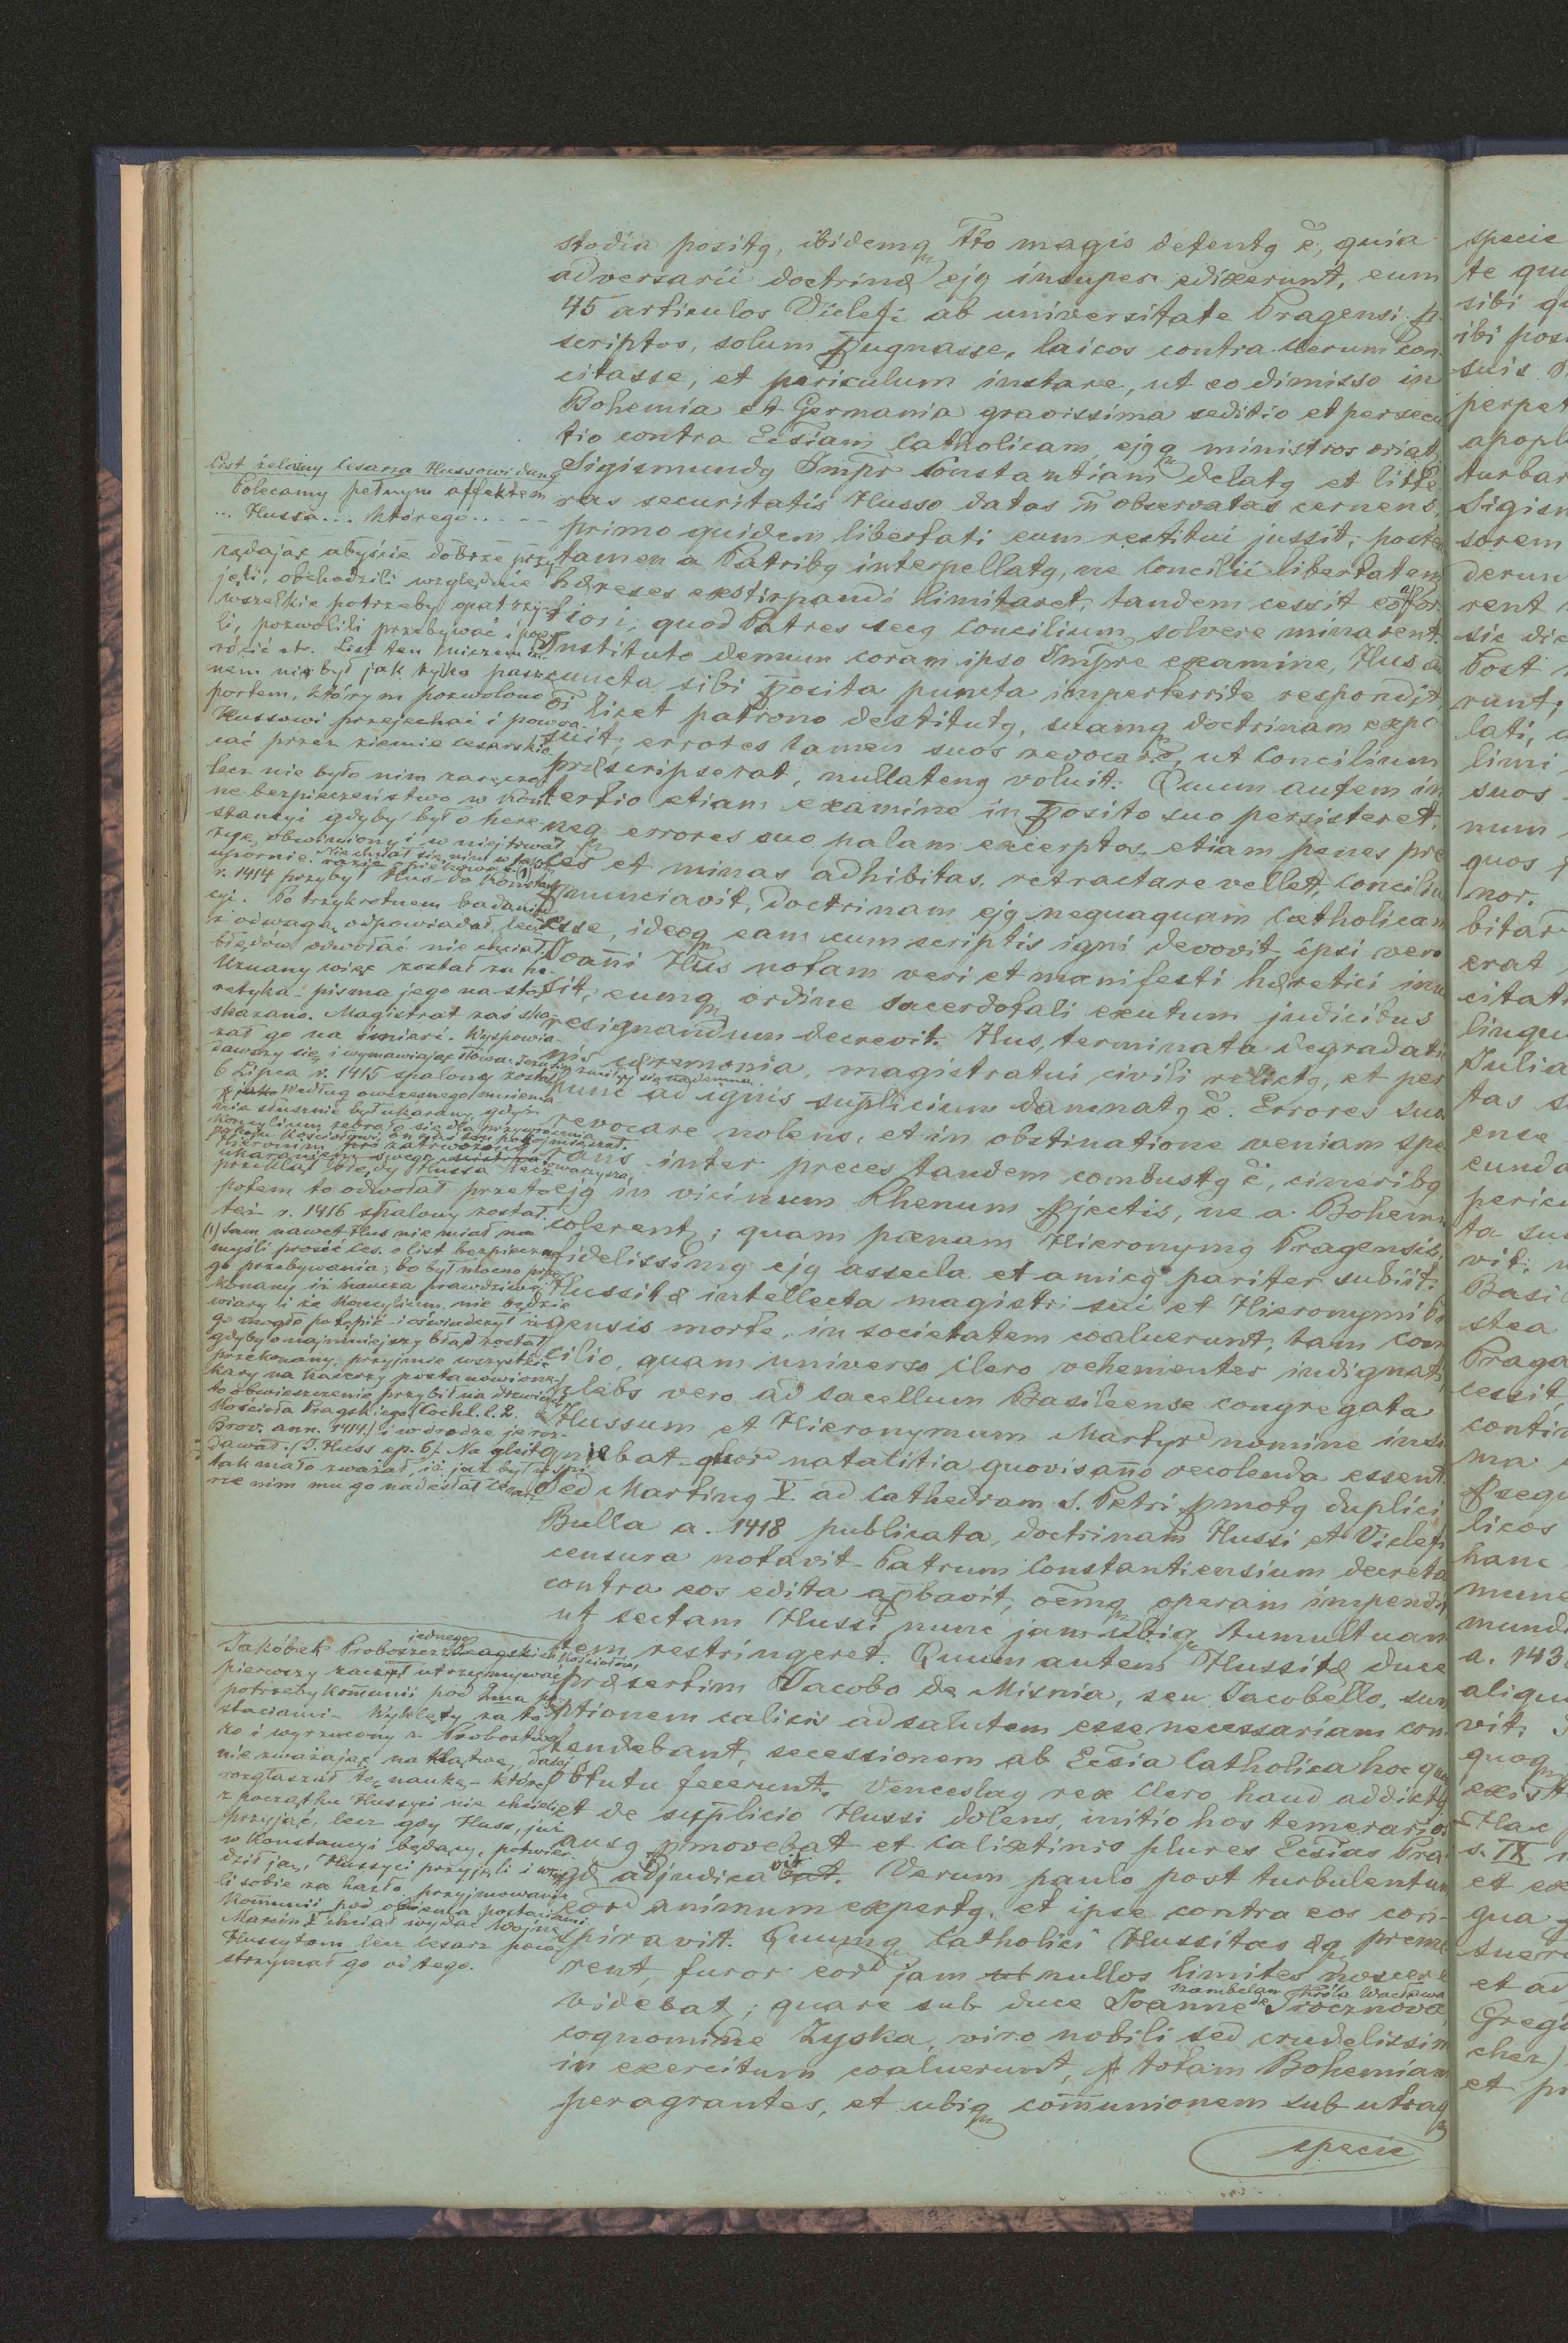 stodia positq, ibidemq tto magis detentq ē, quia
adversarii doctrinæ ejq insuper edixerunt, eum
45 articulos Viclefi ab universitate Pragensi p
scriptos, solum pugnasse, laicos contra clerum con
citasse, et periculum instare, ut eo dimisso in
Bohemia et Germania gravissima seditio et persecu
tio contra Ecsiam Catholicam ejqq ministros oriat,
Sigismundq Impr Constantiam delatq et litte
ras securitatis Husso datas n observatas cernens,
primo quidem libertati eum restitui jussit, postea
tamen a Patribq interpellatq, ne Concilii libertatem
hæreses exstirpandi limitaret, tandem cessit eo for
tiori, quod Patres secq Concilium solvere minarent.
Instituto demum coram ipso Impre examine, Hus ad
cuncta sibi posita puncta imperterrite respondit,
et licet patrono destitutq, suamq doctrinam expo
suit, errores tamen suos revocare, ut Concilium
præscripserat, nullatenq voluit. Quum autem in
tertio etiam examine in posito suo persisteret,
neq errores suo palam excerptos, etiam penes pre
ces et minas adhibitas, retractare vellet, Concilium
pnunciavit, doctrinam ejq nequaquam Catholicam
esse, ideoq eam cum scriptis igni devovit, ipsi vero
Joani Hus notam veri et manifesti hæretici inus
sit, eumq ordine sacerdotali exutum judicibus
resignandum decrevit. Hus, terminata degradatio
nis cæremonia, magistratui civili relictq, et per
hunc ad ignis suplicium damnatq ē. Errores suos
revocare nolens, et in obstinatione veniam spe
rans inter preces tandem combustq ē, cineribq
ejq in vicinum Rhenum pjectis, ne a Bohemis
colerent; quam pœnam Hieronymq Pragensis,
fidelissimq ejq assecla et amicq pariter subiit.
Hussitæ intellecta magistri sui et Hieronymi Pra
gensis morte, in societatem coaluerunt, tam con
cilio, quam universo clero vehementer indignati,
plebs vero ad sacellum Basileense congregata
Hussum et Hieronymum Martyr nomine insi
gniebat quor natalitia quovis ano recolenda essent.
Sed Martinq V. ad Cathedram S. Petri pmotq duplici
Bulla a. 1418 publicata, doctrinam Hussi et Viclefi
censura notavit Patrum Constantiensium decreta
contra eos edita apbavit, oemq operam impendit
ut sectam Hussi nunc jam ubiq tumultuan
tem restringeret. Quum autem Hussitæ duce
præsertim Jacobo de Misnia, seu Jacobello, sum
ptionem calicis ad salutem esse necessariam con
tendebant, secessionem ab Ecsia Catholica hoc qua
obtutu fecerunt. Venceslaq rex Clero haud addictq
et de suplicio Hussi dolens, initio hos temerarios
ausq pmovebat et calixtinis plures Ecsias Pra
gæ adjudicavit. Verum paulo post turbulentum
eor animum expertq, et ipse contra eos con-
spiravit. Quumq Catholici Hussitas æq preme
rent, furor eor jam nullos limites noscere
szambelan Króla Wacława
videbat; quare sub duce Joanne de Trocznova
cognomine Zyska, viro nobili sed crudelissimo
in exercitum coaluerunt, p totam Bohemiam
peragrantes, et ubiq communionem sub utraq
specie
List żelazny Cesarza Hussowi dany
Polecamy pełnym affektem
... Hussa ... którego ...
żądając abyście dobrze przy
jęli, obchodzili względnie
wszelkie potrzeby opatrzy-
li, pozwolili przebywać i pow
rócić etc. List ten niczem in
nem nie był jak tylko pasz
portem, którym pozwolono
Hussowi przejechać i powra-
cać przez ziemie cesarskie
lecz nie było nim zaręczo
ne bezpieczeństwo w Kon
stancyi gdyby był o here
zye obwiniony i w niej trwał
upornie.
r. 1414 przybył Hus do Konstan
cyi. Po trzykrotnem badaniu
z odwagą odpowiadał, lecz
błędów odwołać nie chciał.
Uznany więc został za he-
retyka - pisma jego na stos
skazano. Magistrat zaś ska
zał go na śmierć. Wyspowia-
dawszy się i wymawiając słowa: Jezu zmiłuj się nademną
6 Lipca r. 1415 spalony został
według owczesnego mniema
nia słusznie był ukarany, gdyż
Koncylium zebrało się dla przywrócenia
pokoju Kościołowi, on zaś ten pokój mieszał.
Hieronim
ukaraniem swego towarzysza,
przeklął błędy Hussa lecz
potem to odwołał przeto
też r. 1416 spalony został.
(1) Sam nawet Hus nie miał na
myśli prosić Ces. o list bezpieczne
go przebywania; bo był mocno prze
konany iż naucza prawdziwej
wiary i że Koncylium nie będzie
go mogło potępić i oświadczył iż
gdyby o najmniejszy błąd został
przekonany, przyjmie wszystkie
kary na kacerzy postanowione,
to obwieszczenie przybił na drzwiach
Kościoła Pragskiego (Cochl. l. 2.
Brov. ann. 1414.) i w drodze je roz-
dawał. (J. Huss ep. 6). Na gleit
tak mało zważał, iż już był w
nie nim mu go nadesłał Cesarz
Jakóbek Proboszcz jednego Kościołów,
pierwszy zaczął utrzymywać
potrzebę komunii pod dwma po
staciami - Wyklęty za to
i wyrzucony z Probostwa
nie zważając na klątwę, dalej
rozgłaszał tę naukę - której
z początku Hussyci nie chcieli
przyjąć, lecz gdy Huss, już
w Konstancyi będący, potwier
dził ją, Hussyci przyjęli i wzię
li sobie za hasło przyjmowanie
Komunii pod obiema postaciami
Marcin V chciał wydać Wojnę
Hussytom lecz Cesarz pow
strzymał go od tego.